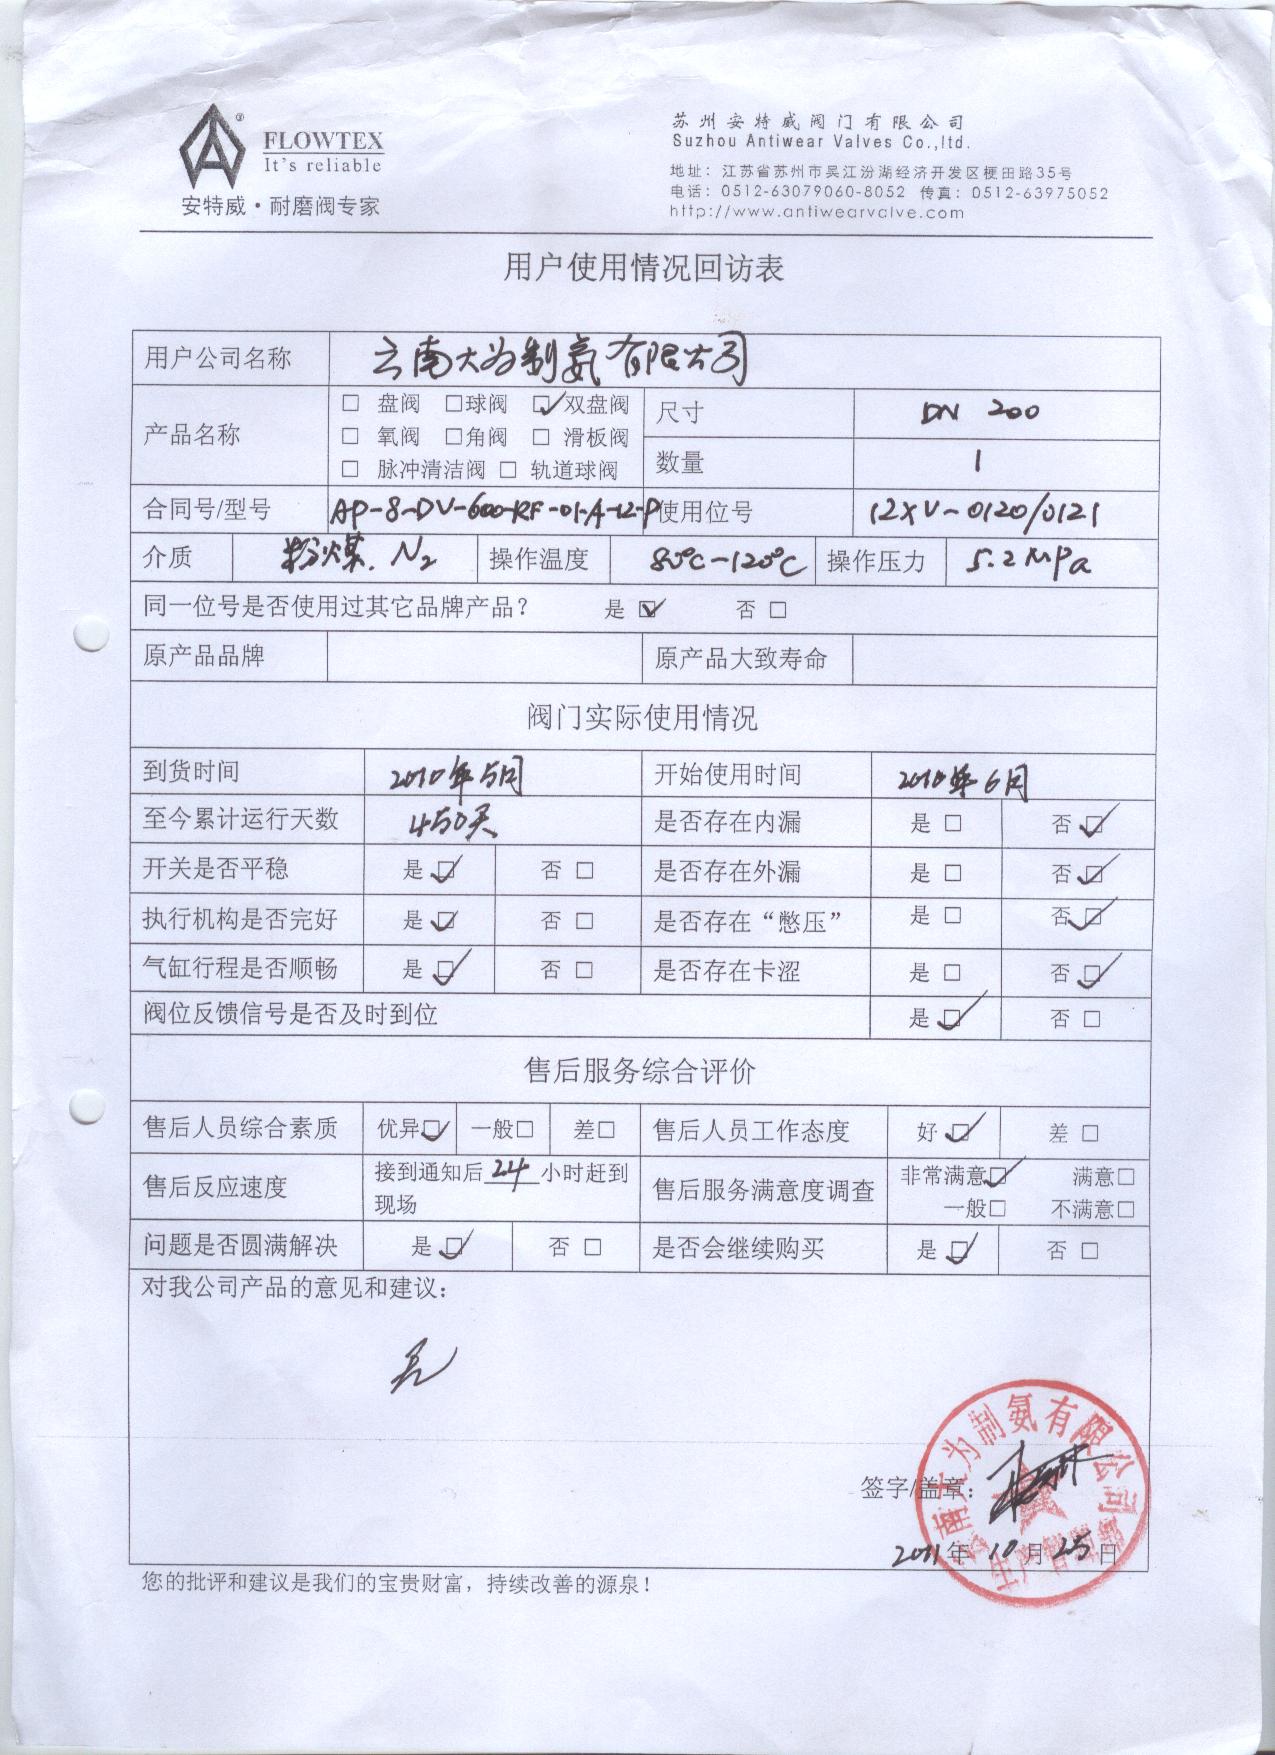 FLOWTEX
It's reliable
安特威·耐磨阀专家
苏州安特威阀门有限公司
Suzhou Antiwear Valves Co.,ltd.
地址：江苏省苏州市吴江汾湖经济开发区梗田路35号
电话：0512-63079060-8052 传真：0512-63975052
http://www.antiwearvalve.com
用户使用情况回访表
用户公司名称 云南大为制氨有限公司
产品名称
□ 盘阀 □球阀 ☑双盘阀
□ 氧阀 □角阀 □ 滑板阀
□ 脉冲清洁阀 □ 轨道球阀
尺寸 DN 200
数量 1
合同号/型号 AP-8-DV-600-RF-01-A-12-P 使用位号 12XV-0120/0121
介质 粉煤. N2 操作温度 80℃-120℃ 操作压力 5.2MPa
同一位号是否使用过其它品牌产品？ 是 ☑ 否 □
原产品品牌 原产品大致寿命
阀门实际使用情况
到货时间 2010年5月 开始使用时间 2010年6月
至今累计运行天数 450天 是否存在内漏 是 □ 否 ☑
开关是否平稳 是 ☑ 否 □ 是否存在外漏 是 □ 否 ☑
执行机构是否完好 是 ☑ 否 □ 是否存在“憋压” 是 □ 否 ☑
气缸行程是否顺畅 是 ☑ 否 □ 是否存在卡涩 是 □ 否 ☑
阀位反馈信号是否及时到位 是 ☑ 否 □
售后服务综合评价
售后人员综合素质 优异☑ 一般□ 差□ 售后人员工作态度 好 ☑ 差 □
售后反应速度 接到通知后 24 小时赶到
现场
售后服务满意度调查 非常满意☑ 满意□
一般□ 不满意□
问题是否圆满解决 是 ☑ 否 □ 是否会继续购买 是 ☑ 否 □
对我公司产品的意见和建议：
无
签字/盖章：
云南大为制氨有限公司
2011年 10月 25日
您的批评和建议是我们的宝贵财富，持续改善的源泉！